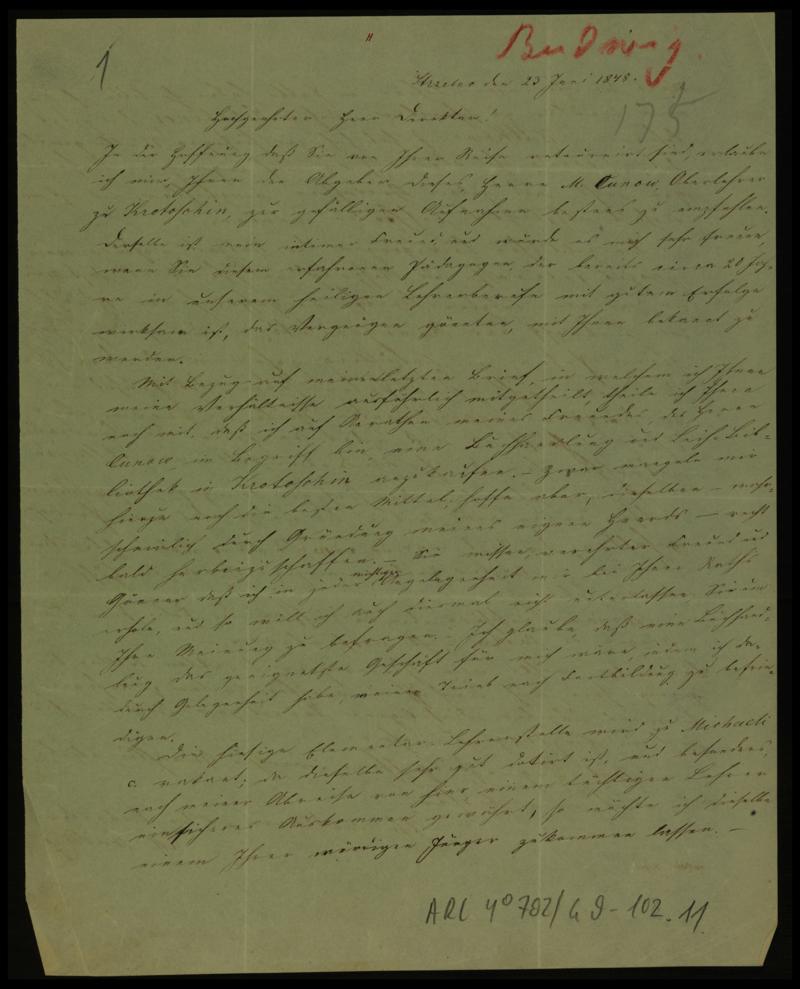 1
"
Budwig.
Strzelno den 23 Juni 1848.
175
Hochgeehrter Herr Direktor!
In der Hoffnung daß Sie von Ihrer Reise retournirt sind, erlaube
ich mir, Ihnen den Abgeber dieses, Herrn M. Cunow, Oberlehrer
zu Krotoschin, zur gefälligen Aufnahme bestens zu empfehlen.
Derselbe ist mein intimer Freund, und würde es mich sehr freuen,
wenn Sie diesem erfahrenen Pädagogen, der bereits circa 20 Jah-
re in unserem heiligen Lehrerberufe mit gutem Erfolge
wirksam ist, das Vergnügen gönnten, mit Ihnen bekannt zu
werden.
Mit Bezug auf meinen letzten Brief, in welchem ich Ihnen
meine Verhältnisse ausführlich mitgetheilt, theile ich Ihnen
noch mit, daß ich auf Anrathen meines Freundes, des Herrn
Cunow, im Begriff bin, eine Buchhandlung und Leih-Bib-
liothek in Krotoschin anzukaufen. – Zwar mangeln mir
hierzu noch die besten Mittel, hoffe aber, dieselben – wahr-
scheinlich durch Gründung meines eignen Heerds – recht
bald herbeizuschaffen. – Sie wissen, verehrter Freund und
Gönner daß ich in jeder wichtigen Angelegenheit mir bei Ihnen Raths
erhole, und so will ich auch diesmal nicht unterlassen, Sie um
Ihre Meinung zu befragen. – Ich glaube, daß eine Buchhand-
lung das geeignetste Geschäft für mich wäre, indem ich da-
durch Gelegenheit habe, meinen Trieb nach Fortbildung zu befrie-
digen.
Die hiesige Elementar-Lehrerstelle wird zu Michaeli
c. vakant; da dieselbe sehr gut dotirt ist, und besonders,
nach meiner Abreise von hier, einem tüchtigen Lehrer
ein sicheres Auskommen gewährt, so möchte ich dieselbe
einem Ihrer würdigen Jünger zukommen lassen. –
ARC 4° 782/G 9-102.11